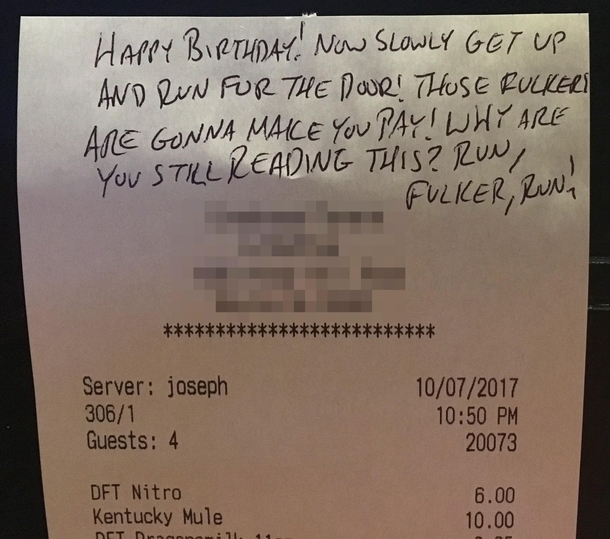 HAPPY BIRTHDAY! NOW SLOWLY GET UP
AND RUN FOR THE DOOR! THOSE FULKERS
ARE GONNA MAKE YOU PAY! WHY ARE
YOU STILL READING THIS? RUN,
FULKER, RUN!
**************************
Server: joseph 10/07/2017
306/1 10:50 PM
Guests: 4 20073
DFT Nitro 6.00
Kentucky Mule 10.00